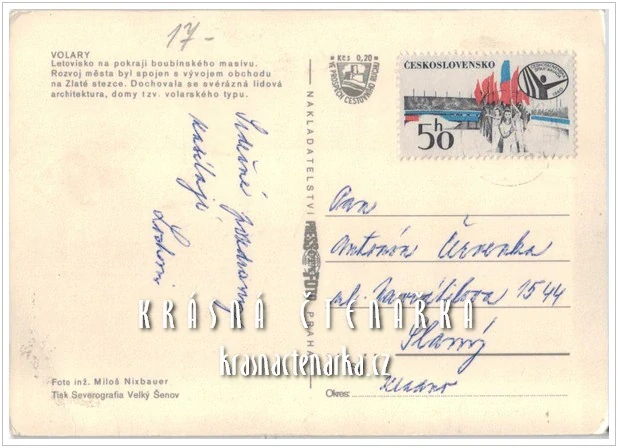 17-
VOLARY
Letovisko na pokraji boubínského masivu.
Rozvoj města byl spojen s vývojem obchodu
na Zlaté stezce. Dochovala se svérázná lidová
architektura, domy tzv. volarského typu.
Kčs 0,20
VE PROSPĚCH CESTOVNÍHO RUCHU
ČESKOSLOVENSKO
50h
Srdečné pozdravy
zasílají
NAKLADATELSTVÍ PRESSFOTO PRAHA
Pan
Antonín Červenka
ul. 1544
Slaný
Kladno
KRÁSNÁ ČTENÁRKA
krasnactenarka.cz
Foto inž. Miloš Nixbauer
Tisk Severografia Velký Šenov
Okres: